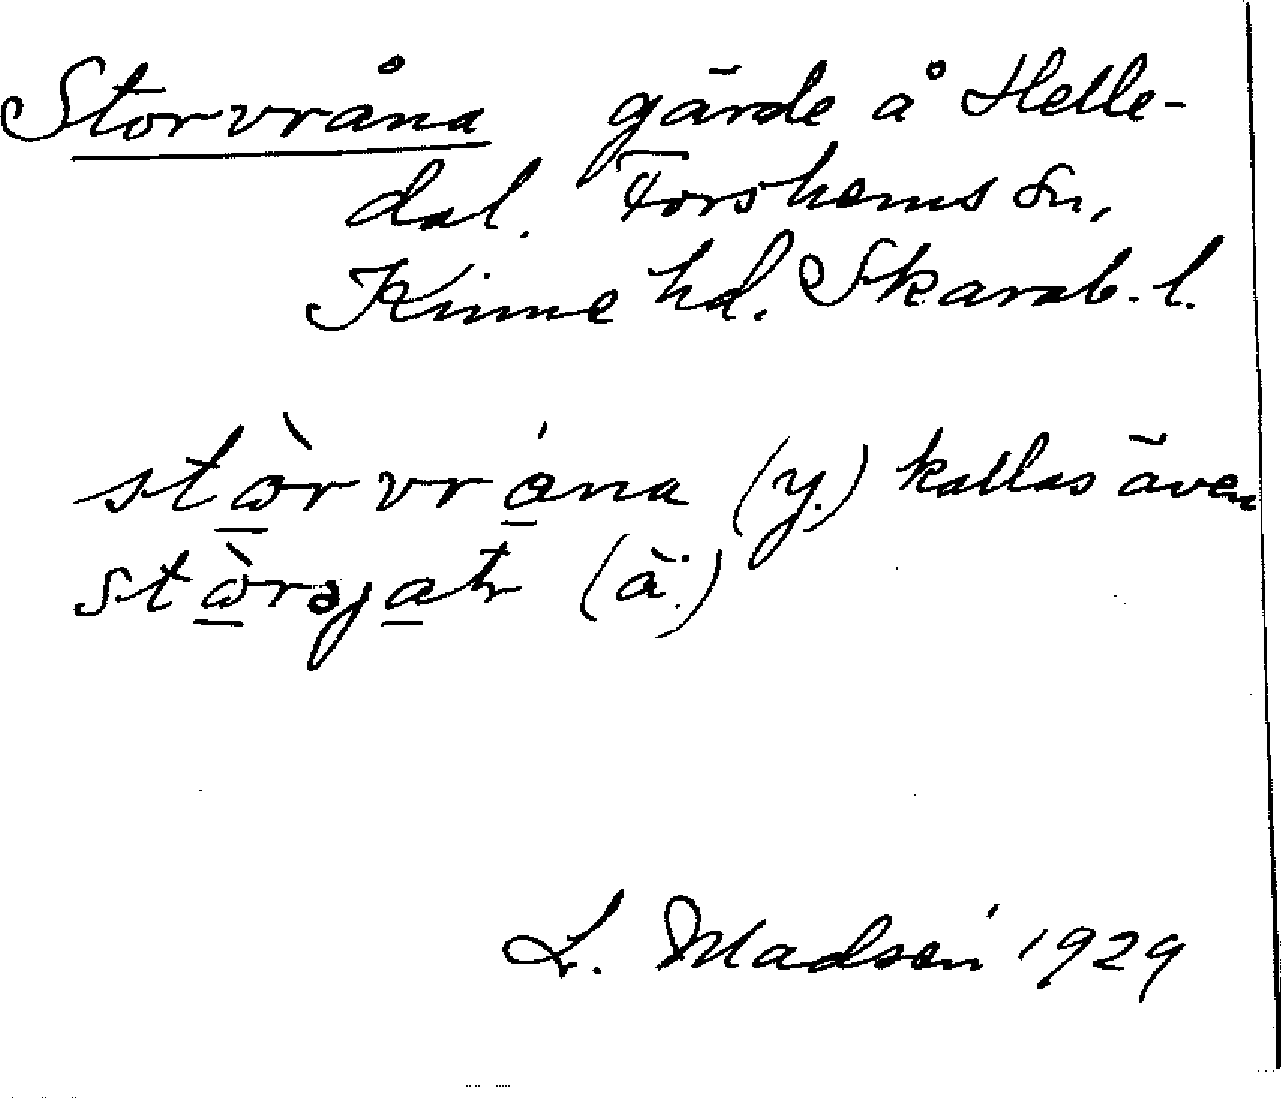 Storvråna gärde å Helle-
dal. Forshems Sn,
Kinne hd. Skarab. l.
stòrvråna (y.) kallas även
(ä.)
L. Madsén 1929